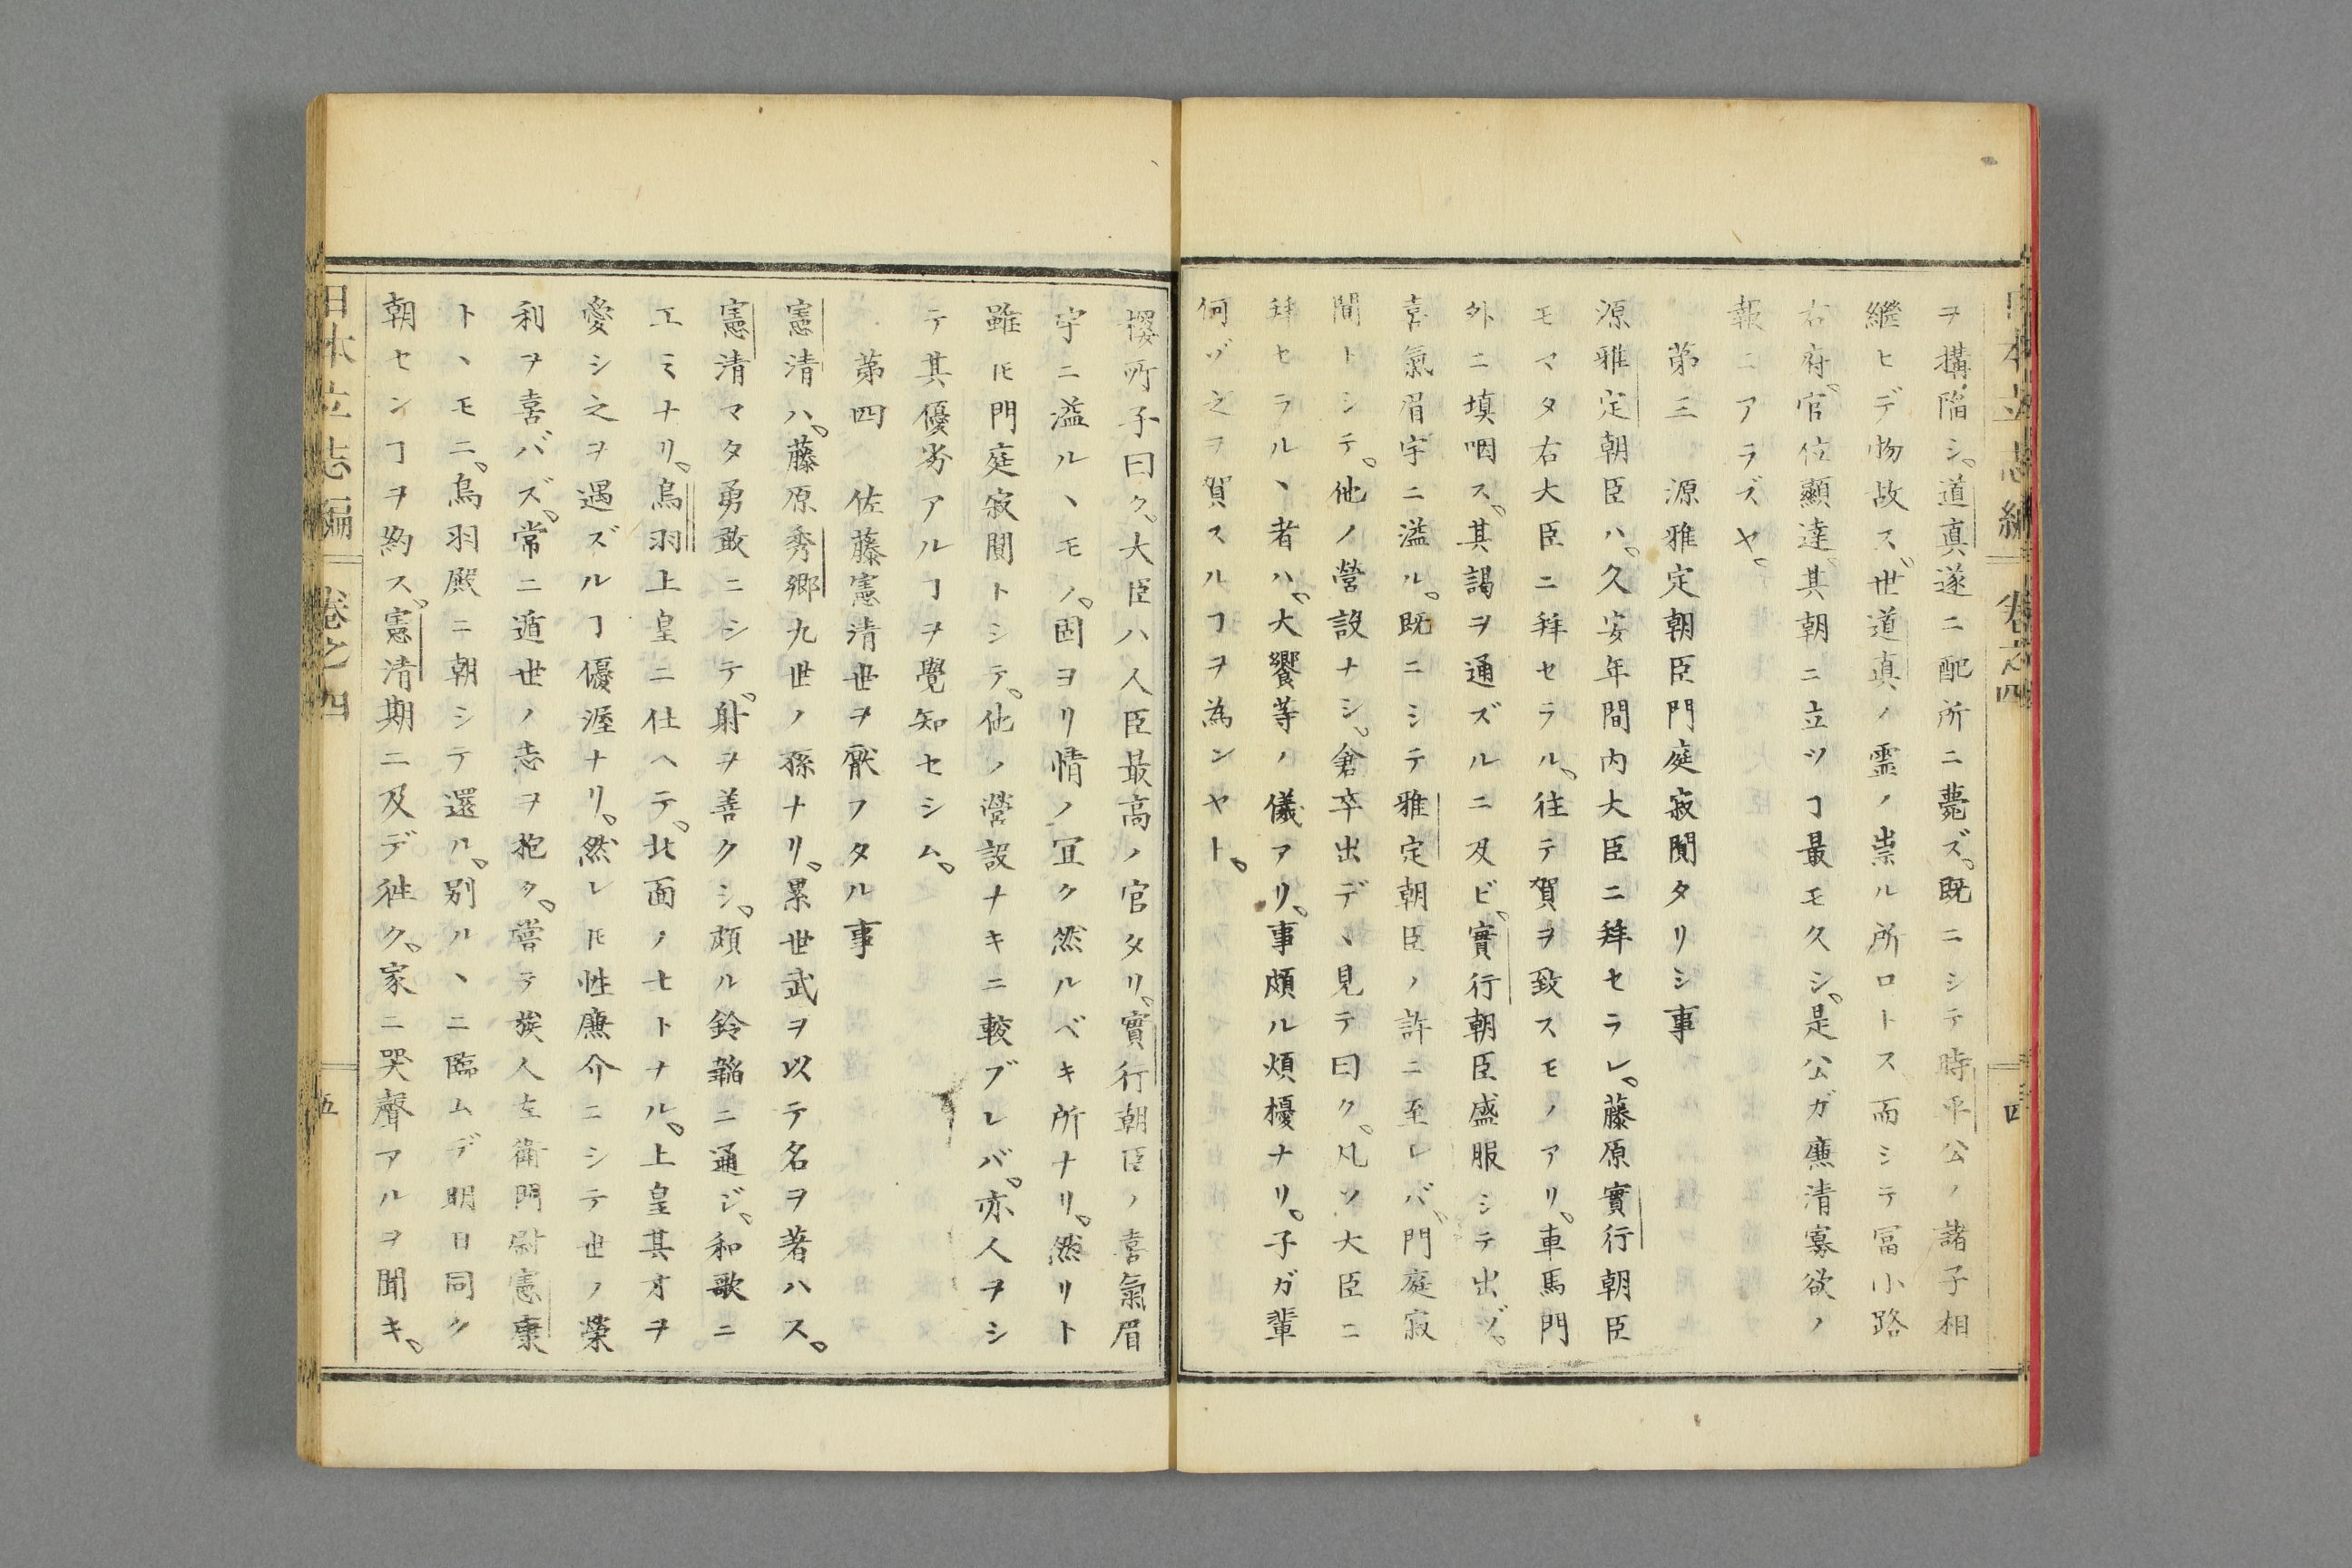 日本立志編 卷之四 四
ヲ搆陥シ。道真遂ニ配所ニ薨ズ。既ニシテ時平公ノ諸子相
繼ヒデ物故ス。世道真ノ霊ノ祟ル所ロトス而シテ冨小路
右府。官位顯達。其朝ニ立ツヿ最モ久シ。是公ガ廉清寡欲ノ
報ニアラズヤ。
第三 源雅定朝臣門庭寂閴タリシ事
源雅定朝臣ハ。久安年間内大臣ニ拜セラレ。藤原實行朝臣
モマタ右大臣ニ拜セラル。往テ賀ヲ致スモノアリ。車馬門
外ニ填咽ス。其謁ヲ通ズルニ及ビ。實行朝臣盛服シテ出ヅ。
喜氣眉宇ニ溢ル。既ニシテ雅定朝臣ノ許ニ至レバ。門庭寂
閴トシテ。他ノ營設ナシ。倉卒出デヽ見テ曰ク。凡ソ大臣ニ
拜セラルヽ者ハ。大饗等ノ儀アリ。事頗ル煩擾ナリ。子ガ輩
何ゾ之ヲ賀スルヿヲ為ンヤト。
櫻所子曰ク。大臣ハ人臣最高ノ官タリ。實行朝臣ノ喜氣眉
宇ニ溢ルヽモノ。固ヨリ情ノ冝ク然ルベキ所ナリ。然リト
雖𪜈門庭寂閴トシテ。他ノ營設ナキニ較ブレバ。亦人ヲシ
テ其優劣アルヿヲ覺知セシム。
第四 佐藤憲清世ヲ厭フタル事
憲清ハ。藤原秀郷九世ノ孫ナリ。累世武ヲ以テ名ヲ著ハス。
憲清マタ勇敢ニシテ。射ヲ善クシ。頗ル鈴韜ニ通ジ。和歌ニ
工ミナリ。鳥羽上皇ニ仕ヘテ。北面ノ士トナル。上皇其才ヲ
愛シ之ヲ遇ズルヿ優渥ナリ。然レ𪜈性廉介ニシテ世ノ榮
利ヲ喜バズ。常ニ遁世ノ志ヲ抱ク。嘗テ族人左衛門尉憲康
トヽモニ。鳥羽殿ニ朝シテ還ル。別ルヽニ臨ムデ明日同ク
朝センヿヲ約ス。憲清期ニ及デ徃ク。家ニ哭聲アルヲ聞キ。
日本立志編 卷之四 五